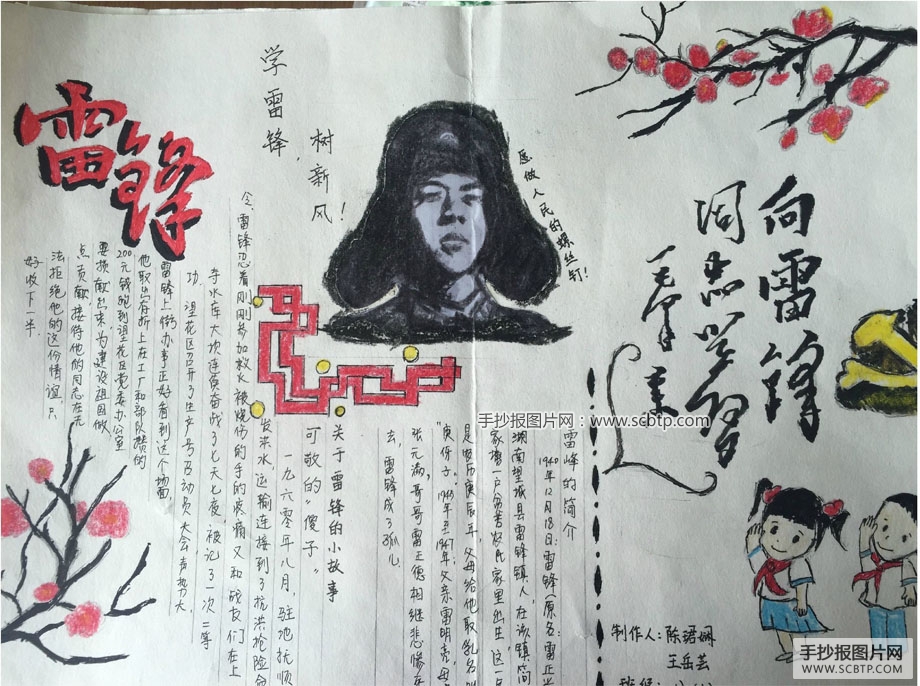 雷锋
学雷锋,
树新风!
愿做人民的螺丝钉!
向雷锋
同志学习
毛泽东
雷峰的简介
1940年12月18日:雷锋(原名:雷正
湖南望城县雷锋镇人,在该镇简
家塘一户贫苦农民家里出生,这一
是农历庚辰年,父母给他取乳名
“庚伢子”。1943年至1947年,父亲雷明亮,母
张元满,哥哥雷正德相继悲惨
去,雷锋成了孤儿。
关于雷锋的小故事
可敬的“傻子”
一九六零年八月,驻地抚顺
发洪水,运输连接到了抗洪抢险命
令。雷锋忍着刚刚参加救火被烧伤的手的疼痛又和战友们在上
寺水库大坝连续奋战了七天七夜,被记了一次二等
功。望花区召开了生产号召动员大会声势大,
雷锋上街办事正好看到这个场面,
他取出存折上在工厂和部队攒的
200元钱跑到望花区党委办公室
要捐献出来为建设祖国做
点贡献,接待他的同志在无
法拒绝他的这份情谊,只
好收下一半。
手抄报图片网:www.scbtp.com
制作人:陈珺娴
王岳芸
班级:
手抄报图片网
WWW.SCBTP.COM